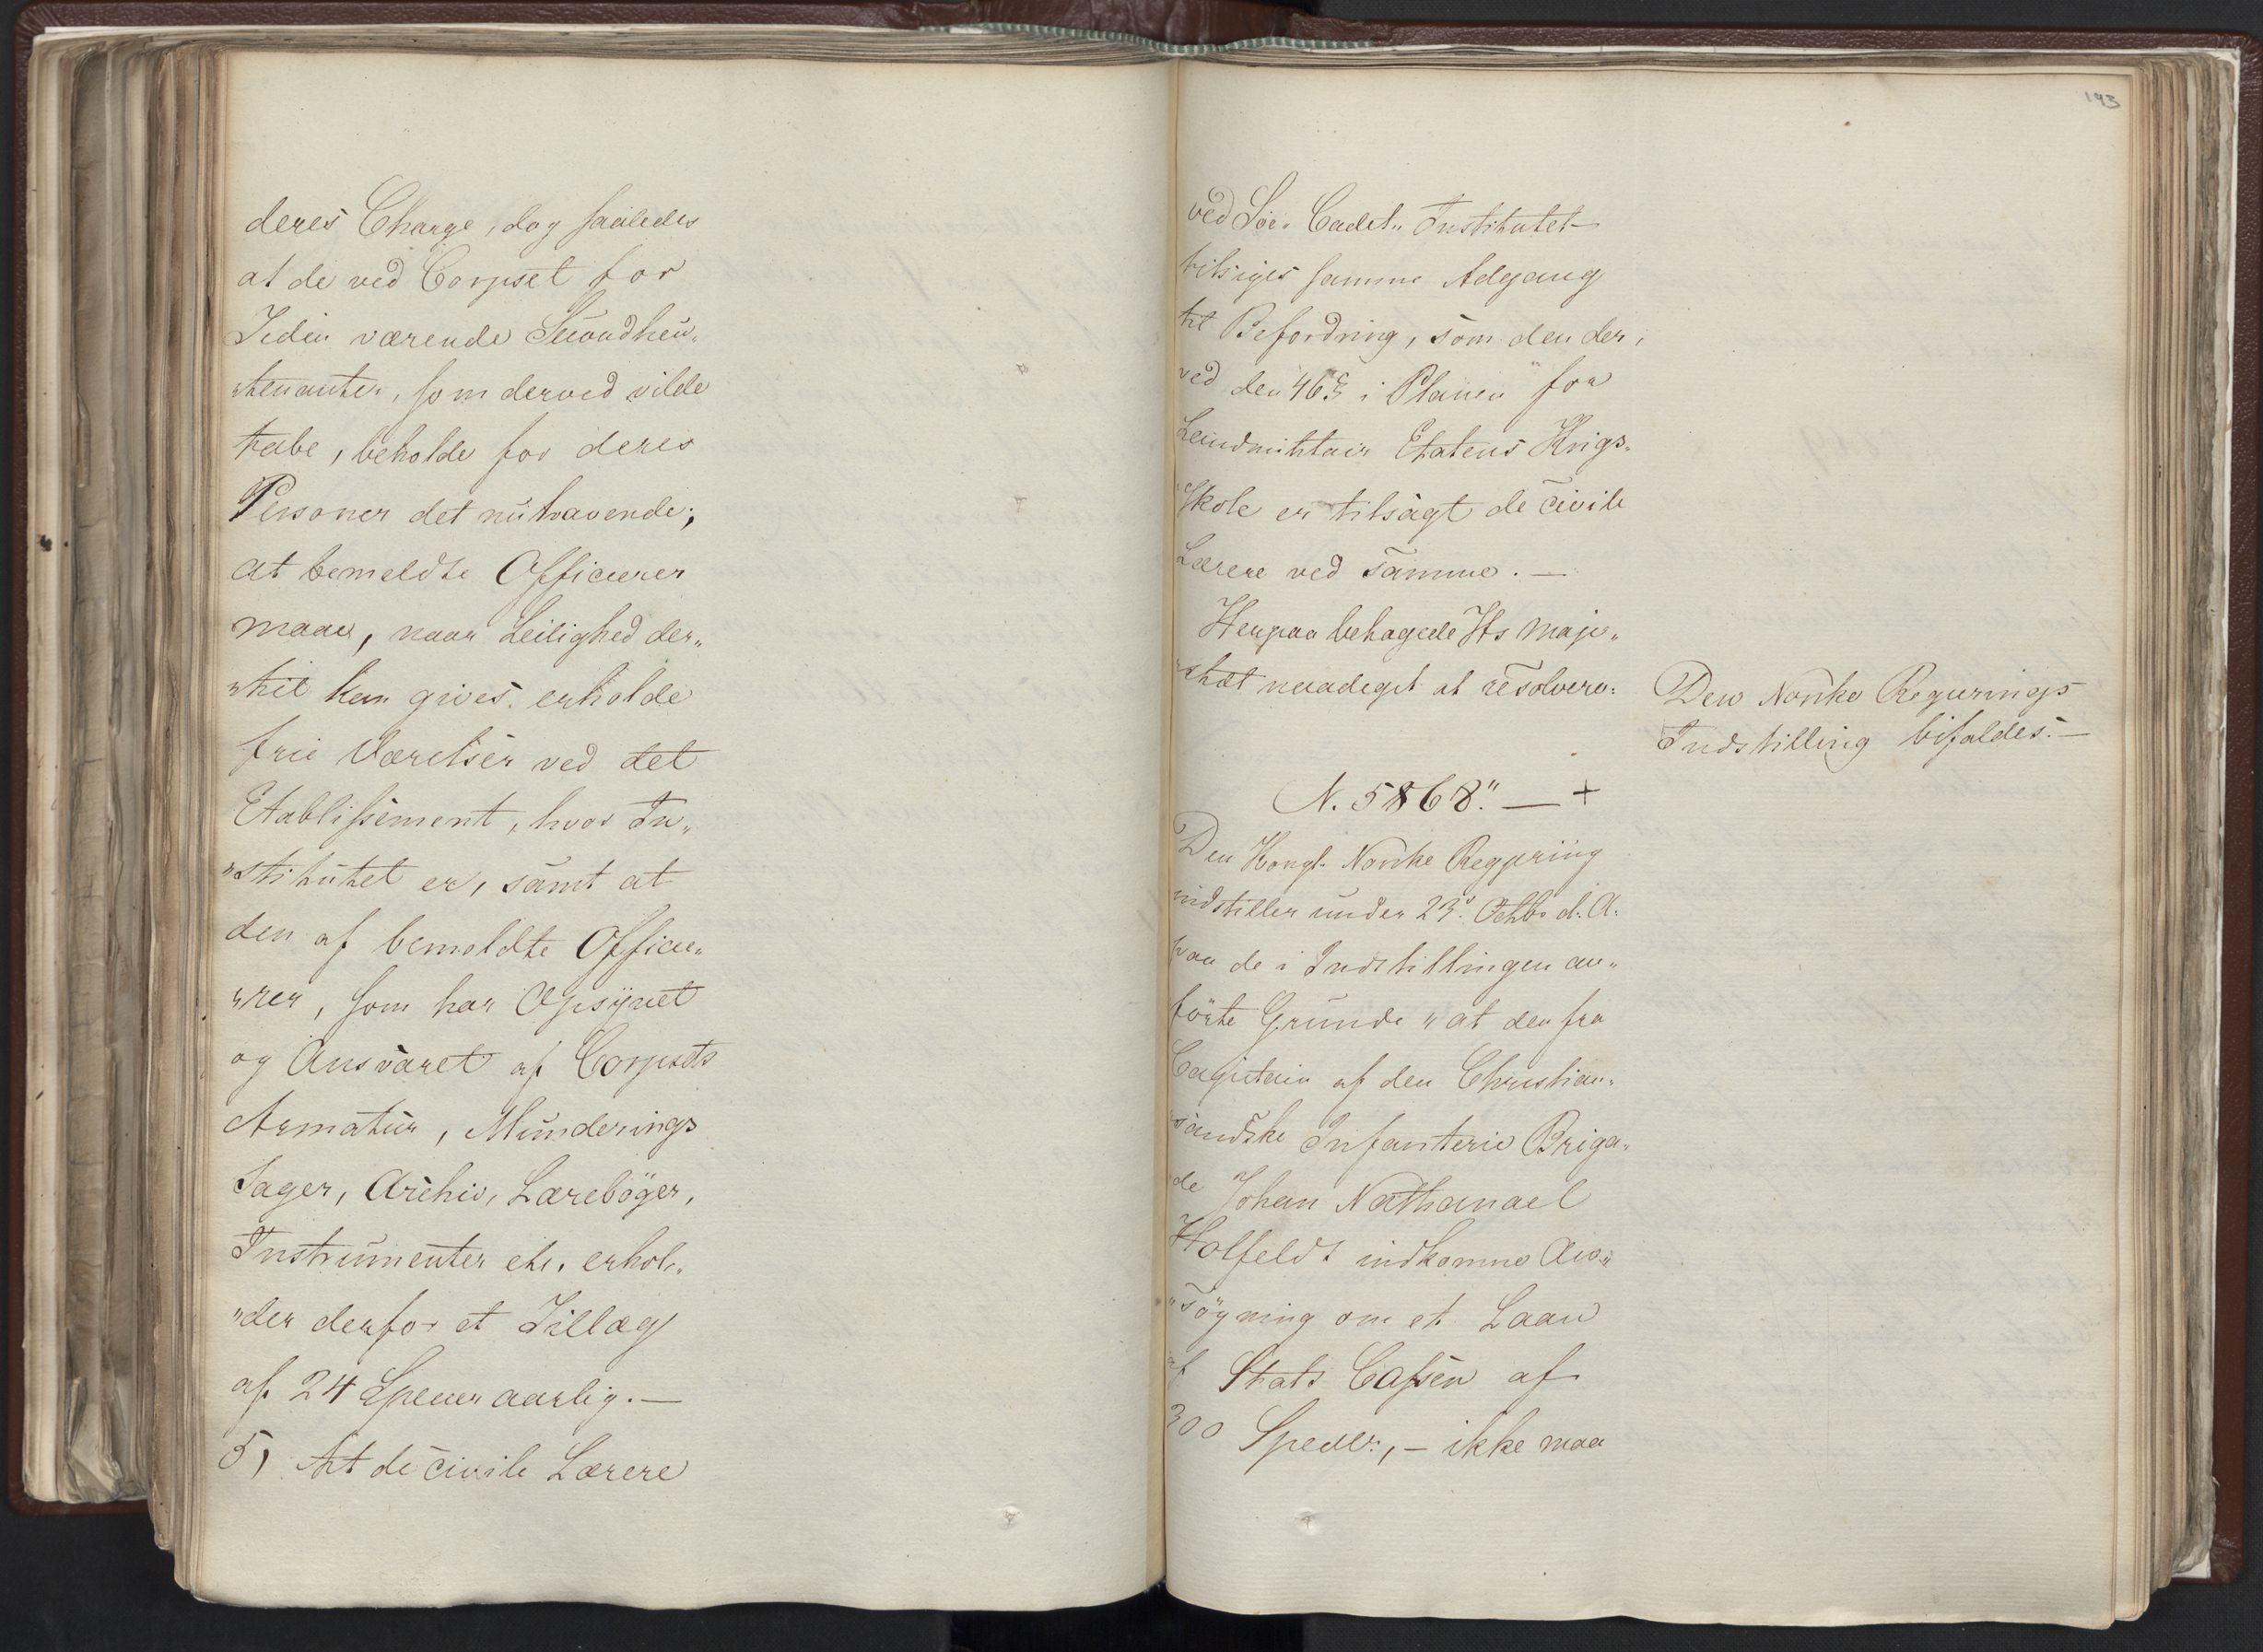 deres Charge, dog saaledes
at de ved Corpset for
Tiden værende Secondlieu„
„tenanter, som derved vilde
tabe, beholde for deres
Personer det nu havende;
at bemeldte Officierer
maae, naar Leilighed der„
„til kan gives erholde
frie Værelser ved det
Etablissement, hvor In„
„stitutet er, samt at
den af bemeldte Officie„
„rer, som har Opsynet
og Ansvaret af Corpsets
Armatur, Munderings
Sager, Archiv, Lærebøger,
Instrumenter etc. erhol„
„der derfor et Tillæg
af 24 Species aarlig. —
5, At de civile Lærere
193
ved Søe„ Cadet„ Institutet
tilsiges samme Adgang
til Befordring, som den der„
ved den 46 § i Planen for
Landmilitair Etatens Krigs„
„skole er tilsagt de civile
Lærere ved samme. —
Herpaa behagede Hs Maje„
„stæt naadigst at resolvere:
Den Norske Regjerings
Indstilling bifaldes. —
N. 5868." — +
Den Kongl. Norske Regjering
indstiller under 23d Octbr d. A.
paa de i Indstillingen an„
førte Grunde „at den fra
Capitain af den Christian„
„sandske Infanterie Briga„
de Johan Nathanael
Holfeldt indkomne An„
„søgning om et Laan
af Stats Cassen af
300 Spedlr, — ikke maa